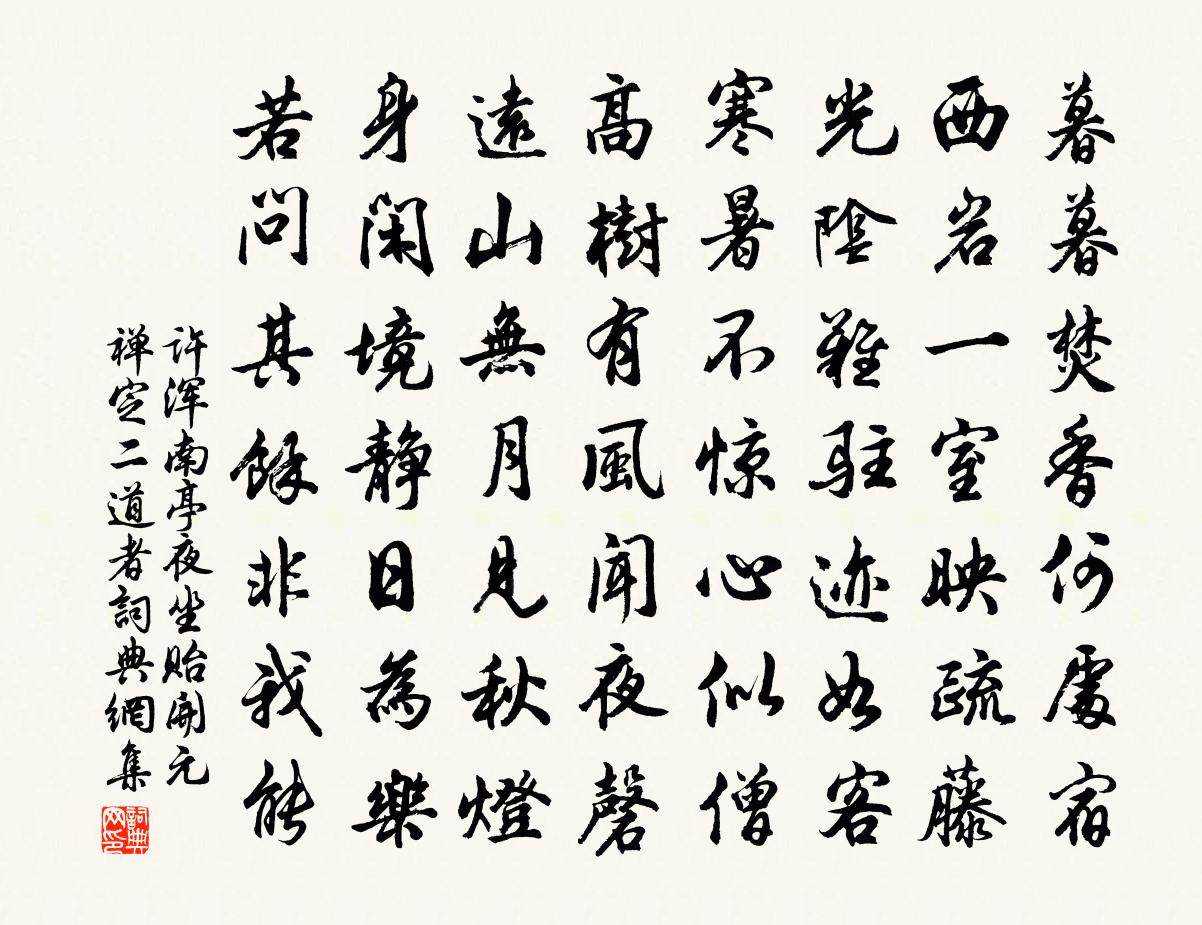 暮暮焚香何處宿
西岩一室映疏藤
光陰難駐迹如客
寒暑不惊心似僧
高樹有風聞夜磬
遠山無月見秋燈
身閑境靜日為樂
若問其餘非我能
许浑南亭夜坐貽開元
禅定二道者詞典網集
詞典
网印